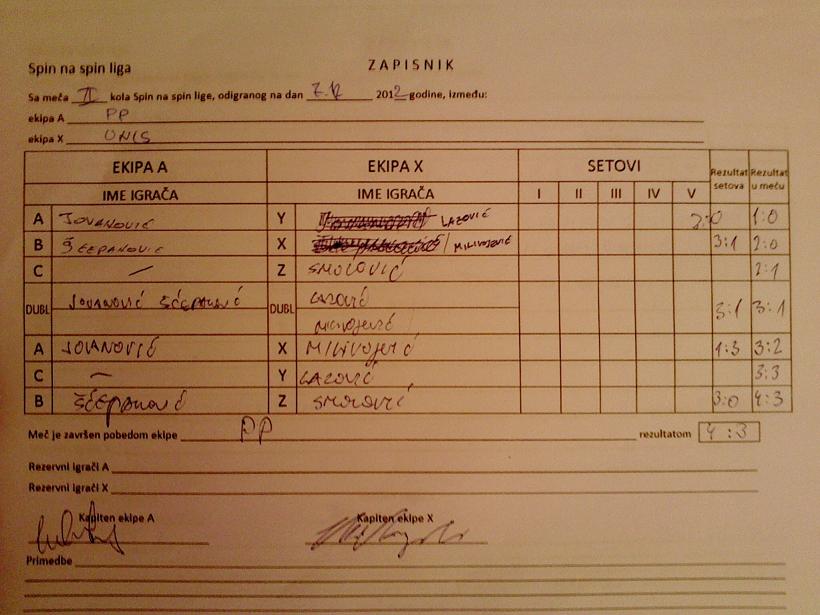 Spin na spin liga
ZAPISNIK
Sa meča II kola Spin na spin lige, odigranog na dan 7.12 2012 godine, između:
ekipa A PP
ekipa X UNIS
EKIPA A EKIPA X SETOVI Rezultat setova Rezultat u meču
IME IGRAČA IME IGRAČA I II III IV V
A JOVANOVIĆ Y LAZOVIĆ 3:0 1:0
B ŠĆEPANOVIĆ X MILIVOJEVIĆ 3:1 2:0
C — Z SMOLOVIĆ 2:1
DUBL JOVANOVIĆ ŠĆEPANOVIĆ DUBL LAZOVIĆ 3:1 3:1
MILIVOJEVIĆ
A JOVANOVIĆ X MILIVOJEVIĆ 1:3 3:2
C — Y LAZOVIĆ 3:3
B ŠĆEPANOVIĆ Z SMOLOVIĆ 3:0 4:3
Meč je završen pobedom ekipe PP rezultatom 4:3
Rezervni igrači A
Rezervni igrači X
Kapiten ekipe A Kapiten ekipe X
Primedbe